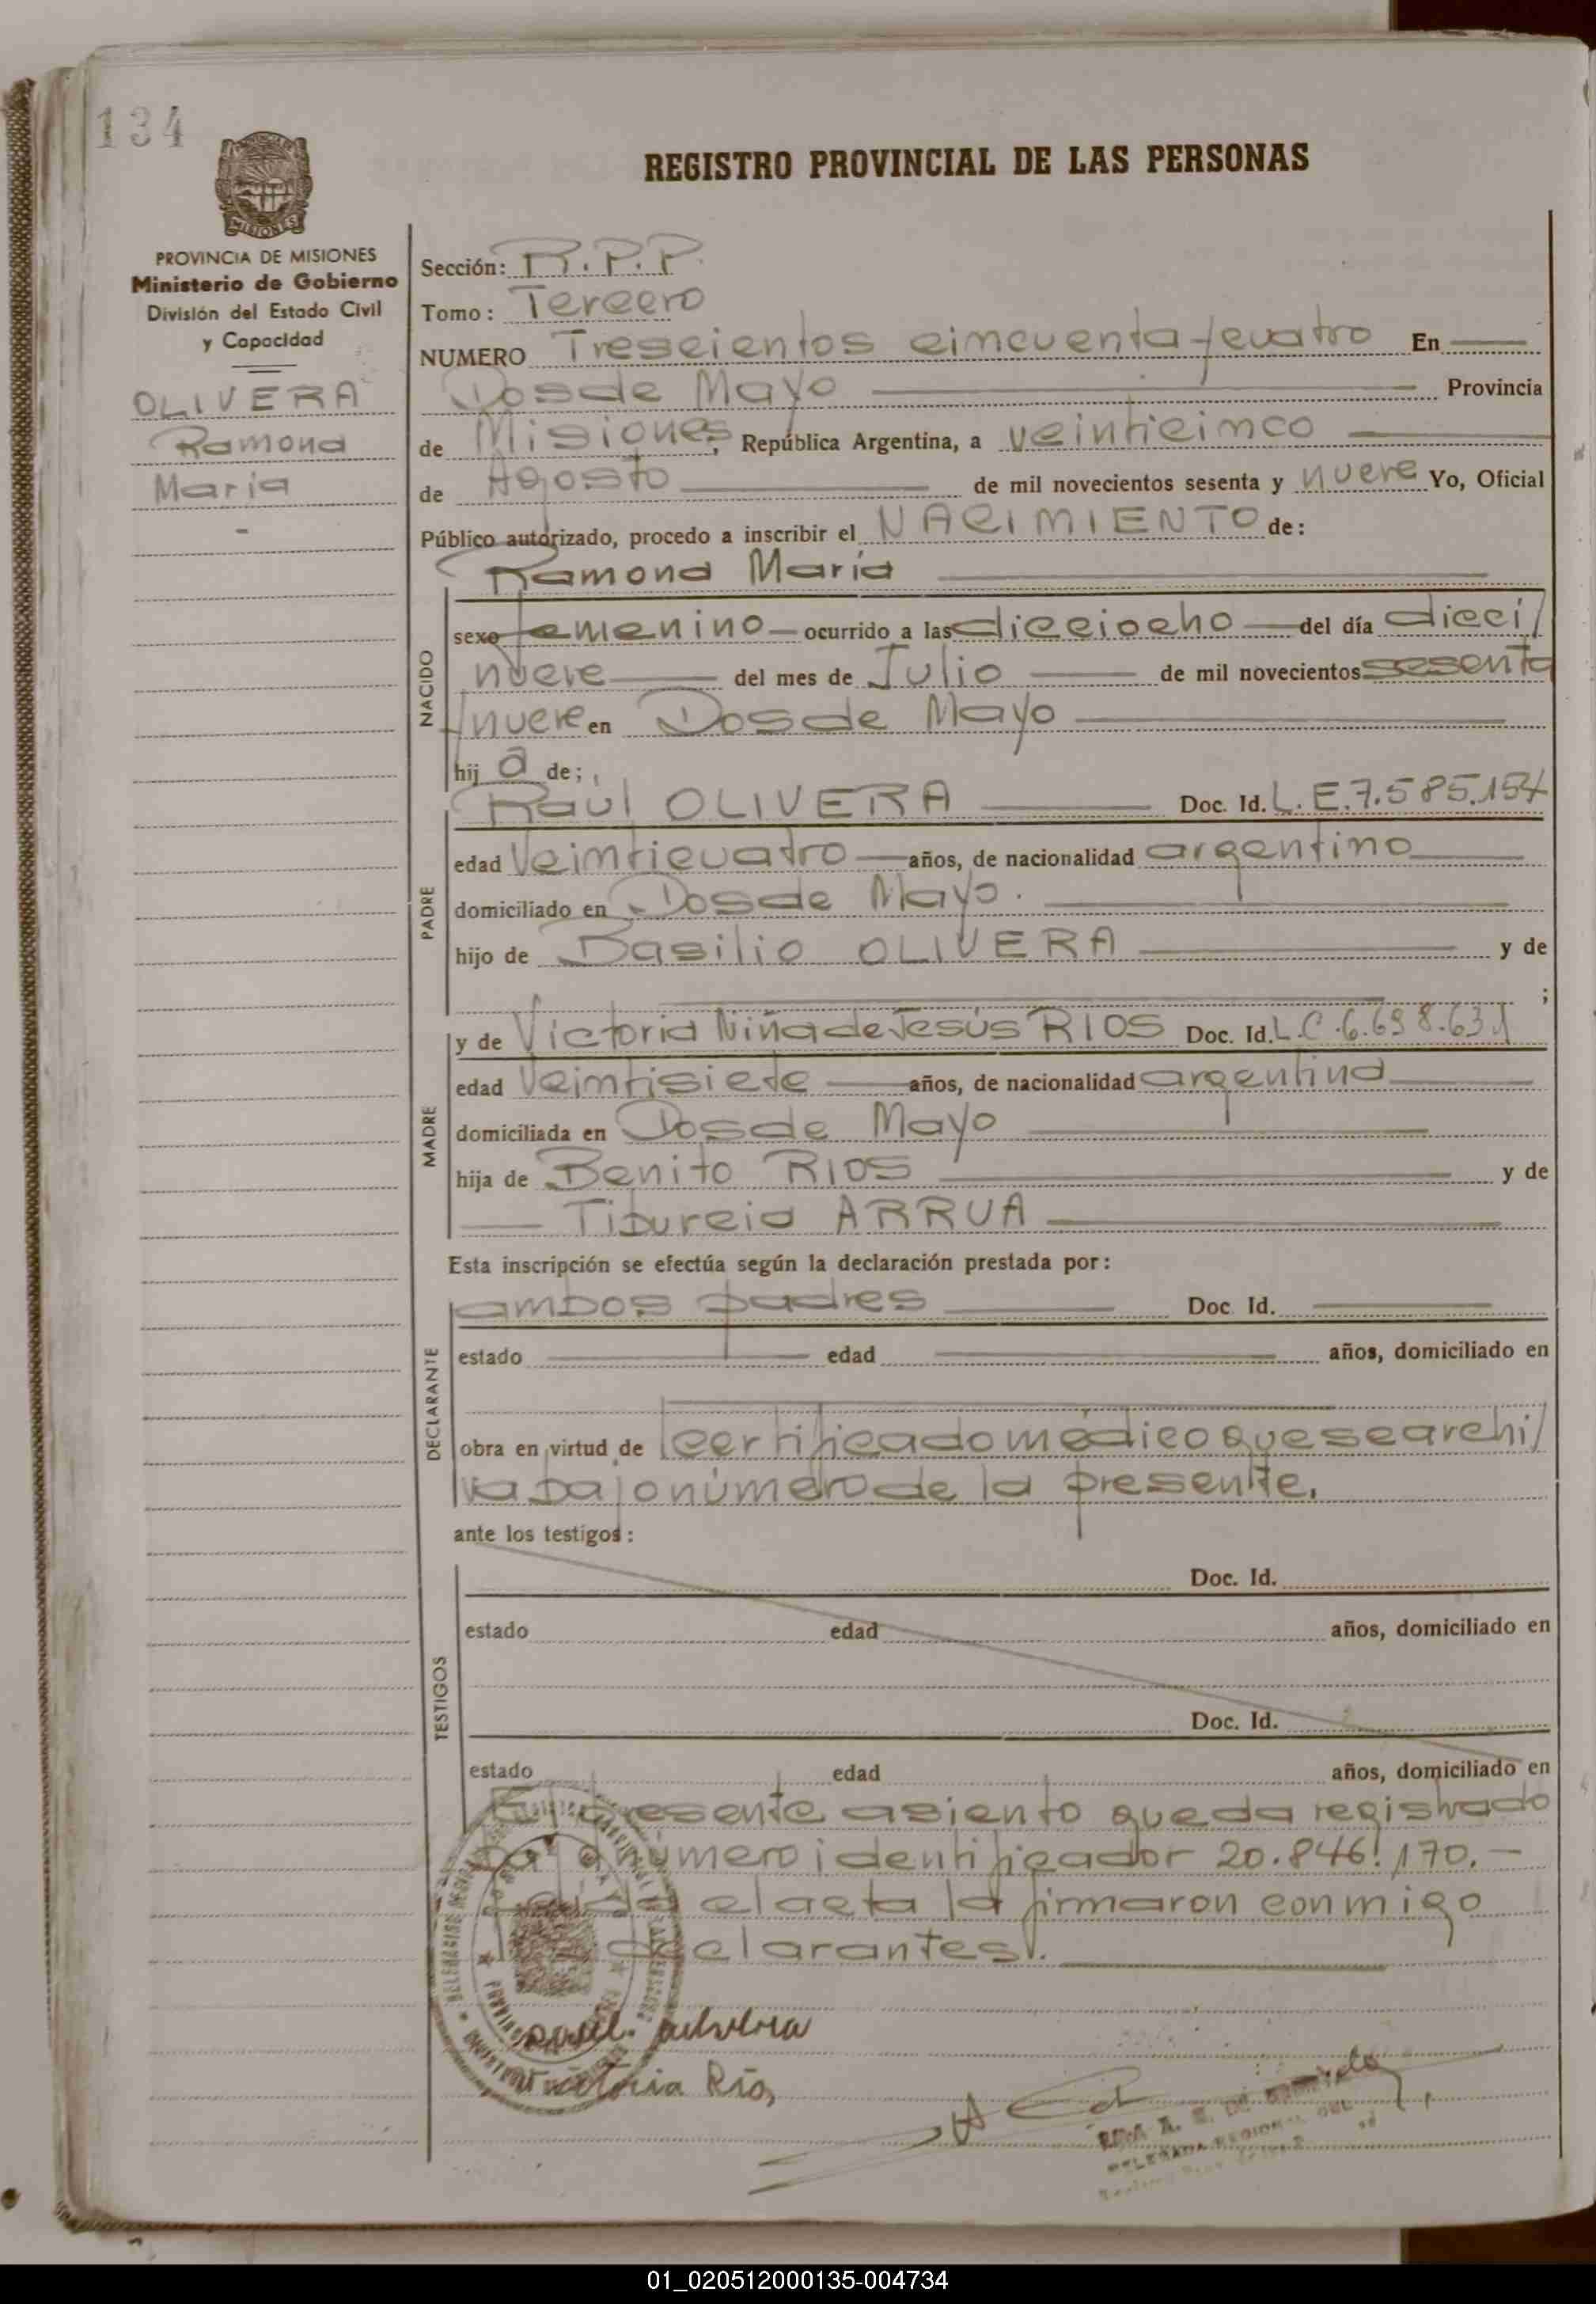 134
REGISTRO PROVINCIAL DE LAS PERSONAS
MISIONES
PROVINCIA DE MISIONES
Ministerio de Gobierno
División del Estado Civil
y Capacidad
OLIVERA
Ramona
María
Sección: R.P.P.
Tomo: Tercero
NUMERO Trescientos cincuenta y cuatro En
Dos de Mayo Provincia
de Misiones, República Argentina, a veinticinco
de Agosto de mil novecientos sesenta y nueve Yo, Oficial
Público autorizado, procedo a inscribir el NACIMIENTO de:
Ramona María
NACIDO
sexo femenino ocurrido a las dieciocho del día dieci/
nueve del mes de Julio de mil novecientos sesenta
y nueve en Dos de Mayo
hij a de;
PADRE
Raúl OLIVERA Doc. Id. L.E.7.585.154
edad veinticuatro años, de nacionalidad argentino
domiciliado en Dos de Mayo.
hijo de Basilio OLIVERA y de
;
MADRE
y de Victoria Niña de Jesús RIOS Doc. Id. L.C.6.698.631
edad veintisiete años, de nacionalidad argentina
domiciliada en Dos de Mayo
hija de Benito RIOS y de
Tiburcia ARRUA
Esta inscripción se efectúa según la declaración prestada por:
DECLARANTE
ambos padres Doc. Id.
estado edad años, domiciliado en
obra en virtud de certificado médico que se archi/
va bajo número de la presente.
ante los testigos:
TESTIGOS
Doc. Id.
estado edad años, domiciliado en
Doc. Id.
estado edad años, domiciliado en
El presente asiento queda registrado
bajo número identificador 20.846.170.-
Leída el acta la firmaron conmigo
los declarantes.
Raul olivera
Victoria Rios
DELEGADA REGIONAL
01_020512000135-004734